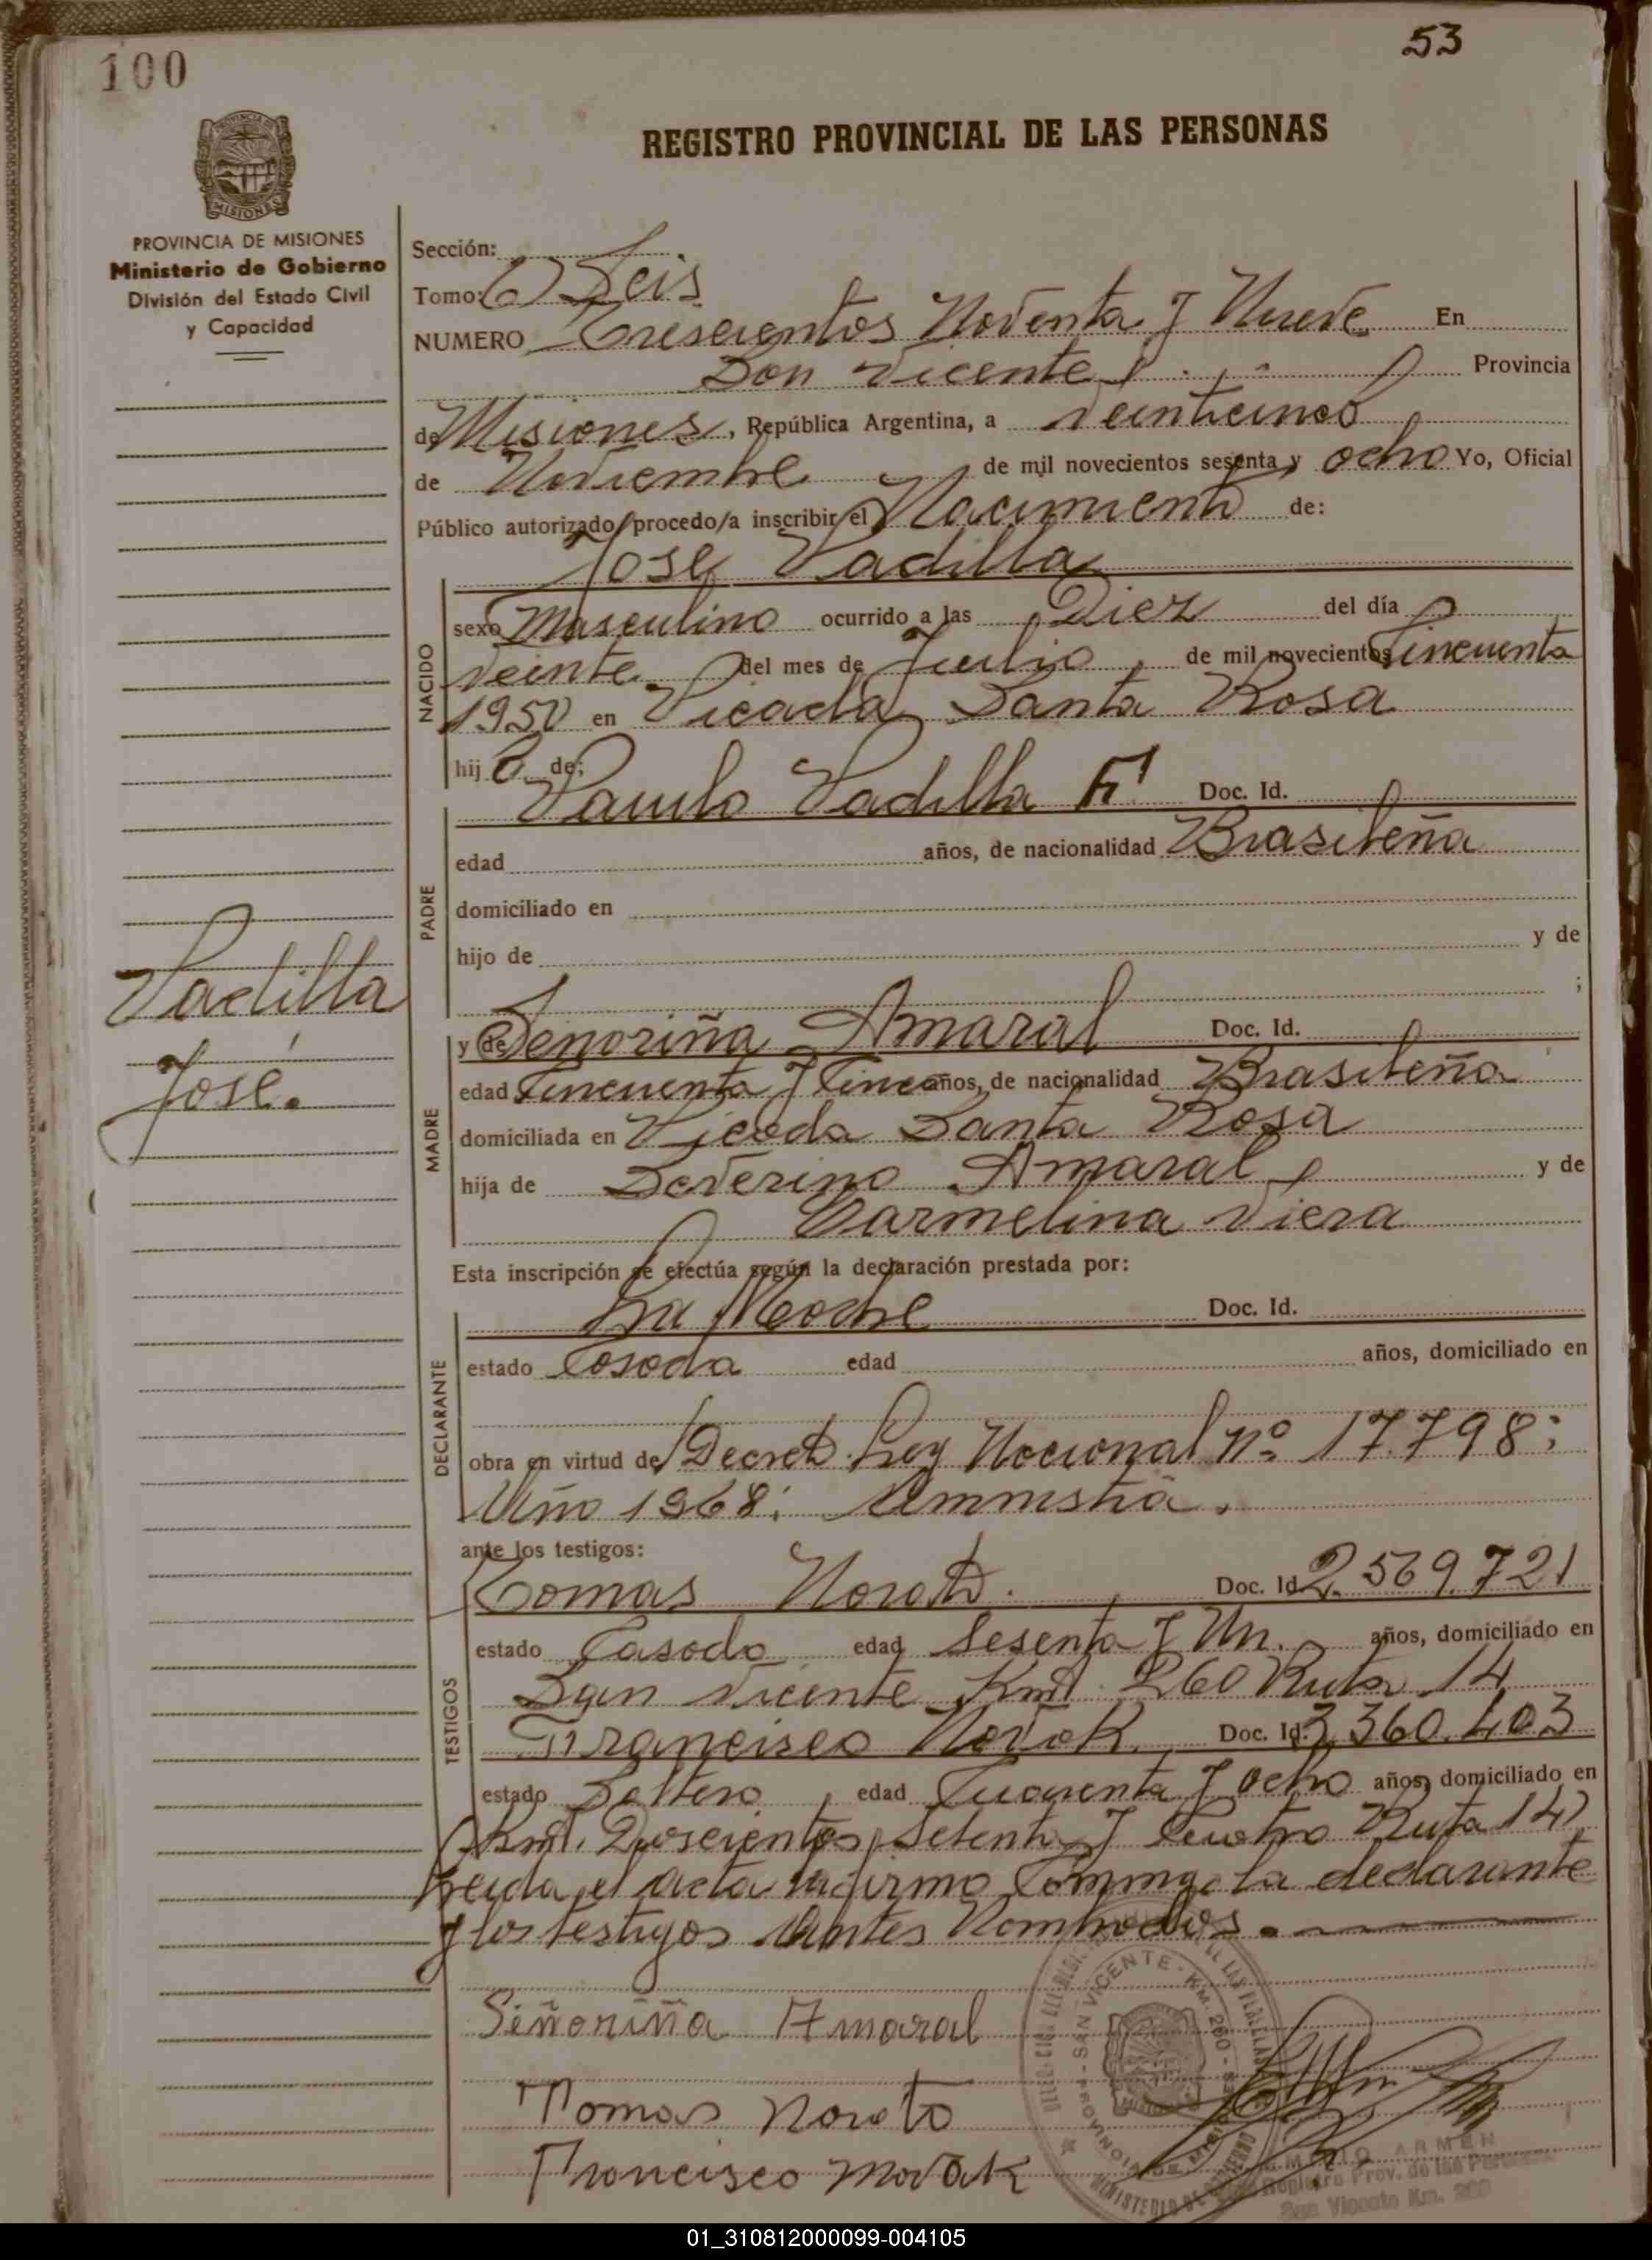 100
53
REGISTRO PROVINCIAL DE LAS PERSONAS
PROVINCIA DE MISIONES
MISIONES
PROVINCIA DE MISIONES
Ministerio de Gobierno
División del Estado Civil
y Capacidad
Sección:
Tomo: 6) Seis
NUMERO Trescientos Noventa y Nueve En
San Vicente Provincia
de Misiones, República Argentina, a veinticinco
de Noviembre de mil novecientos sesenta y ocho Yo, Oficial
Público autorizado procedo/a inscribir el Nacimiento de:
Jose Padilla
NACIDO
sexo Masculino ocurrido a las Diez del día
veinte del mes de Julio de mil novecientos Cincuenta
1950 en Picada Santa Rosa
hijo de:
PADRE
Paulo Padilla Doc. Id.
edad años, de nacionalidad Brasileña
domiciliado en
hijo de y de
;
Padilla
José.
MADRE
y de Señoriña Amaral Doc. Id.
edad Cincuenta y Cinco años, de nacionalidad Brasileña
domiciliada en Picada Santa Rosa
hija de Severino Amaral y de
Carmelina Viera
Esta inscripción se efectúa según la declaración prestada por:
DECLARANTE
La Madre Doc. Id.
estado Casada edad años, domiciliado en
obra en virtud de Decreto Ley Nacional Nº 17.798;
Año 1968; Amnistia.
ante los testigos:
TESTIGOS
Tomas Noroto Doc. Id. 2.569.721
estado Casado edad Sesenta y Un. años, domiciliado en
San Vicente Kmt. 260 Ruta 14
Francisco Novak Doc. Id. 3.360.403
estado Soltero, edad Cuarenta y ocho años, domiciliado en
Kmt. Doscientos Setenta y Cuatro Ruta 14)
Leida el acta la firma Conmigo la declarante
y los testigos Antes Nombrados.
Señoriña Amaral
Tomas Noroto
Francisco Novak
SAN VICENTE - KM. 260
MINISTERIO DE GOBIERNO
ARMEN
Registro Prov. de las Personas
San Vicente Km. 260
01_310812000099-004105